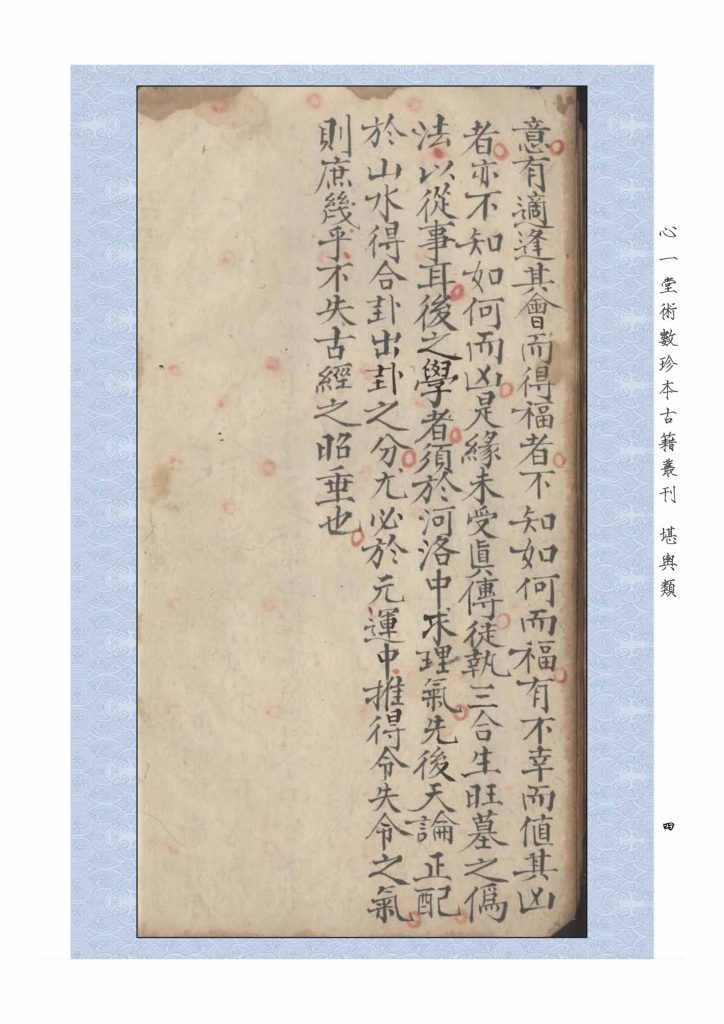 意有適逢其會而得福者不知如何而福有不幸而值其凶
者亦不知如何而凶是緣未受眞傳徒執三合生旺墓之僞
法以從事耳後之學者須於河洛中求理氣先後天論正配
於山水得合卦出卦之分尤必於元運中推得令失令之氣
則庶幾乎不失古經之昭垂也
心一堂術數珍本古籍叢刊 堪輿類
四